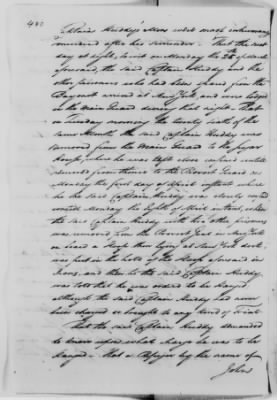 480
Captain Huddy's Men were most inhumanly
murdered after his surrender — That the next
day at night, to wit on Monday the 25th of March
aforesaid, the said Captain Huddy and the
other prisoners who had been taken from the
arrived at New York and were lodged
in the Main Guard during that night — That
on Tuesday morning the twenty sixth of the
same Month the said Captain Huddy was
removed from the Main Guard to the Sugar
House, where he was kept close confined until
removed from thence to the Provost Guard on
Monday the first day of April instant where
he the said Captain Huddy was closely confined
until Monday the Eighth of April instant, when
the said Captain Huddy with two other prisoners
was removed from the Provost Jail in New York
on board a Sloop then lying at New York dock
was put in the hold of the Sloop aforesaid in
Irons, and then to the said Captain Huddy
was told that he was ordered to be hanged
although the said Captain Huddy had never
been charged or brought to any kind of trial
That the said Captain Huddy demanded
to know upon what charge he was to be
hanged — that a Refugee by the name of
John